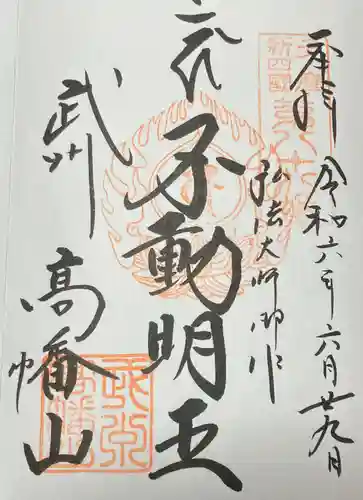 奉拝
令和六年六月廿九日
新四国
弘法大師御作
不動明王
武州
高幡山